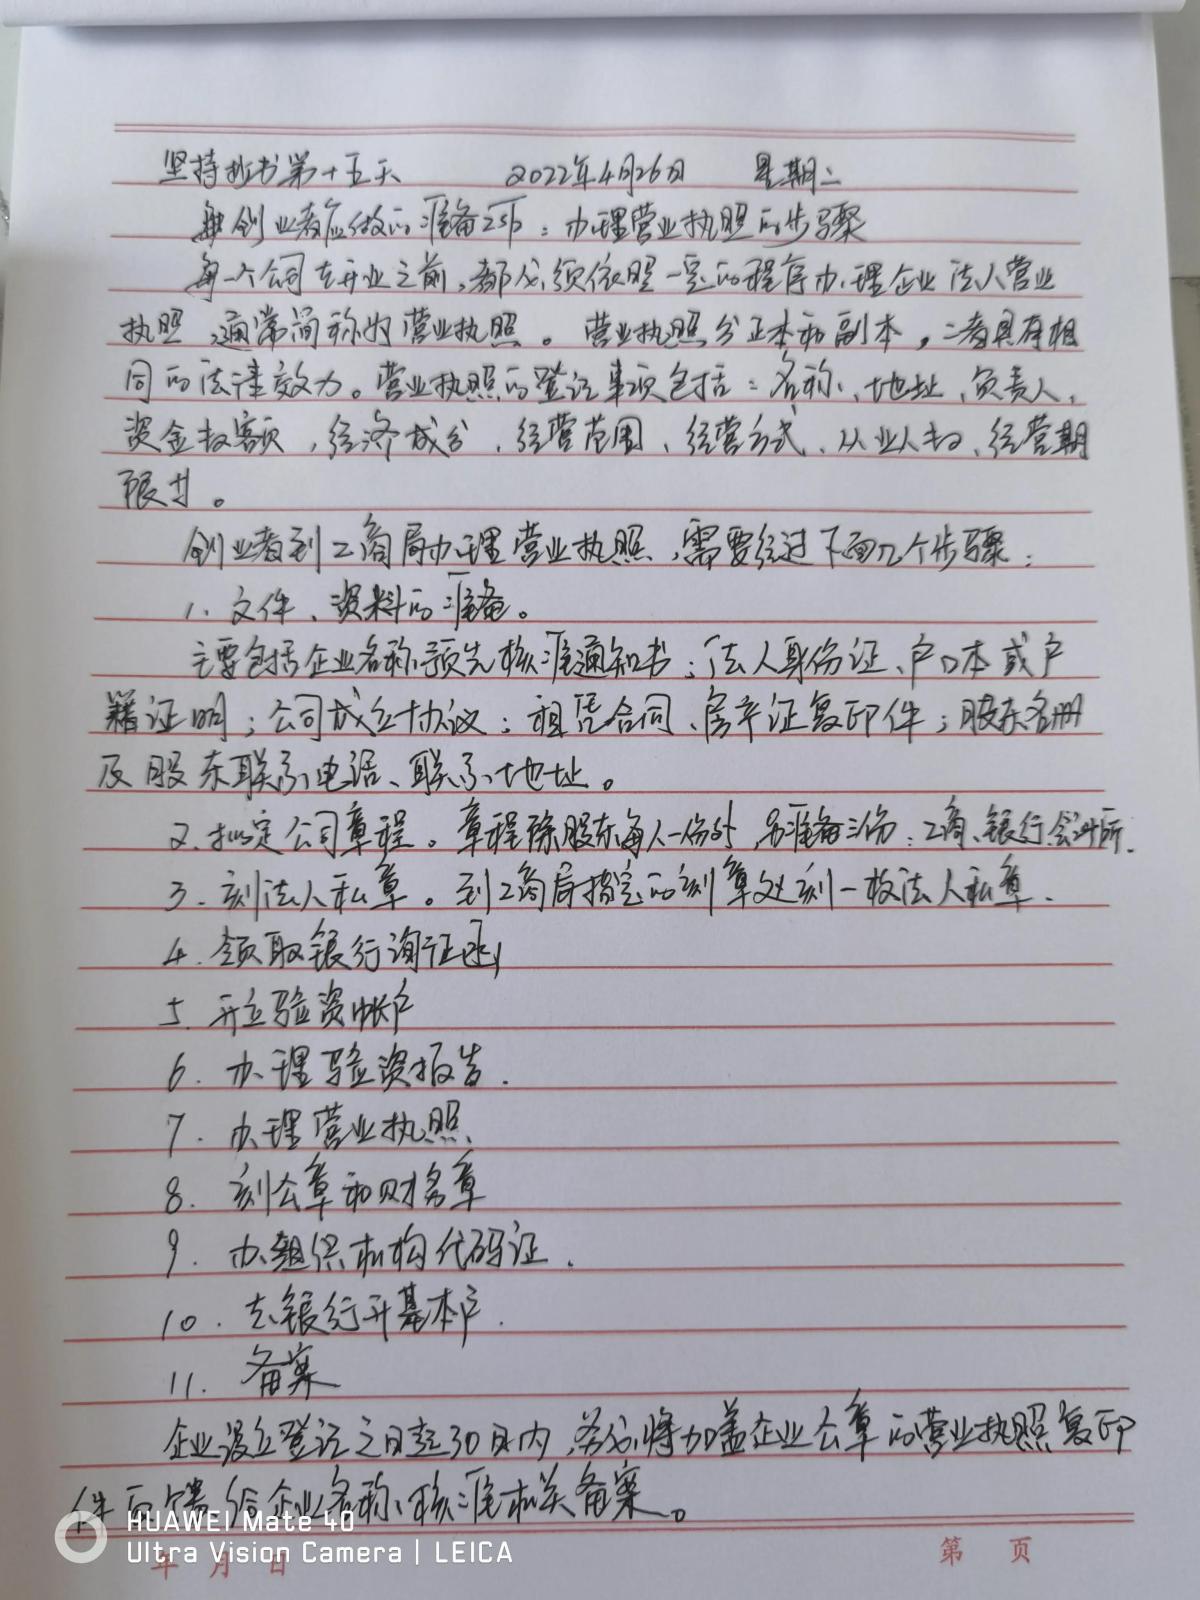 坚持抄书第十五天 2022年4月26日 星期二
创业者应做的准备25: 办理营业执照的步骤
每一个公司在开业之前,都必须依照一定的程序办理企业法人营业
执照,通常简称为营业执照。营业执照分正本和副本,二者具有相
同的法律效力。营业执照的登记事项包括:名称、地址、负责人、
资金数额、经济成分、经营范围、经营方式、从业人数、经营期
限廿。
创业者到工商局办理营业执照,需要经过下面几个步骤:
1. 文件、资料的准备。
主要包括企业名称预先核准通知书;法人身份证、户口本或户
籍证明;公司成立协议;租凭合同、房产证复印件;股东名册
及股东联系电话、联系地址。
2. 拟定公司章程。章程除股东每人一份外,另准备三份:工商、银行、会计所.
3. 刻法人私章。到工商局指定的刻章处刻一枚法人私章.
4. 领取银行询证函
5. 开立验资帐户
6. 办理验资报告.
7. 办理营业执照
8. 刻公章和财务章
9. 办组织机构代码证.
10. 去银行开基本户.
11. 备案
企业设立登记之日起30日内,务必将加盖企业公章的营业执照复印
件反馈给企业名称核准机关备案。
HUAWEI Mate 40
Ultra Vision Camera | LEICA
年 月 日 第 页